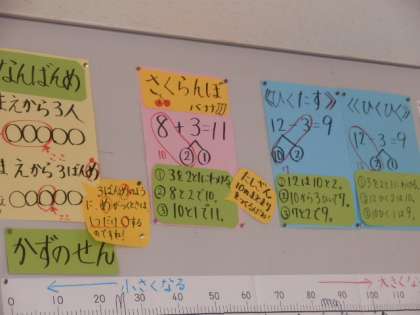 なんばんめ
まえから3人
まえから3ばんめ
3ばんめのよう
に、めがつくときは
1つだけ○する
のですね!
かずのせん
さくらんぼ
8+3=11
10
2 1
①3を2と1にわける
②8と2で10。
③10と1で11。
たしざん
《ひくたす》
12-3=9
10 2
①12は10と2。
②10から3ひいて7。
③7と2で9。
《ひくひく》
12-3=9
2 1
①3を2と1にわける
小さくなる
大きくな
0 10 20 30 40 50 60 70 80 90 100 110